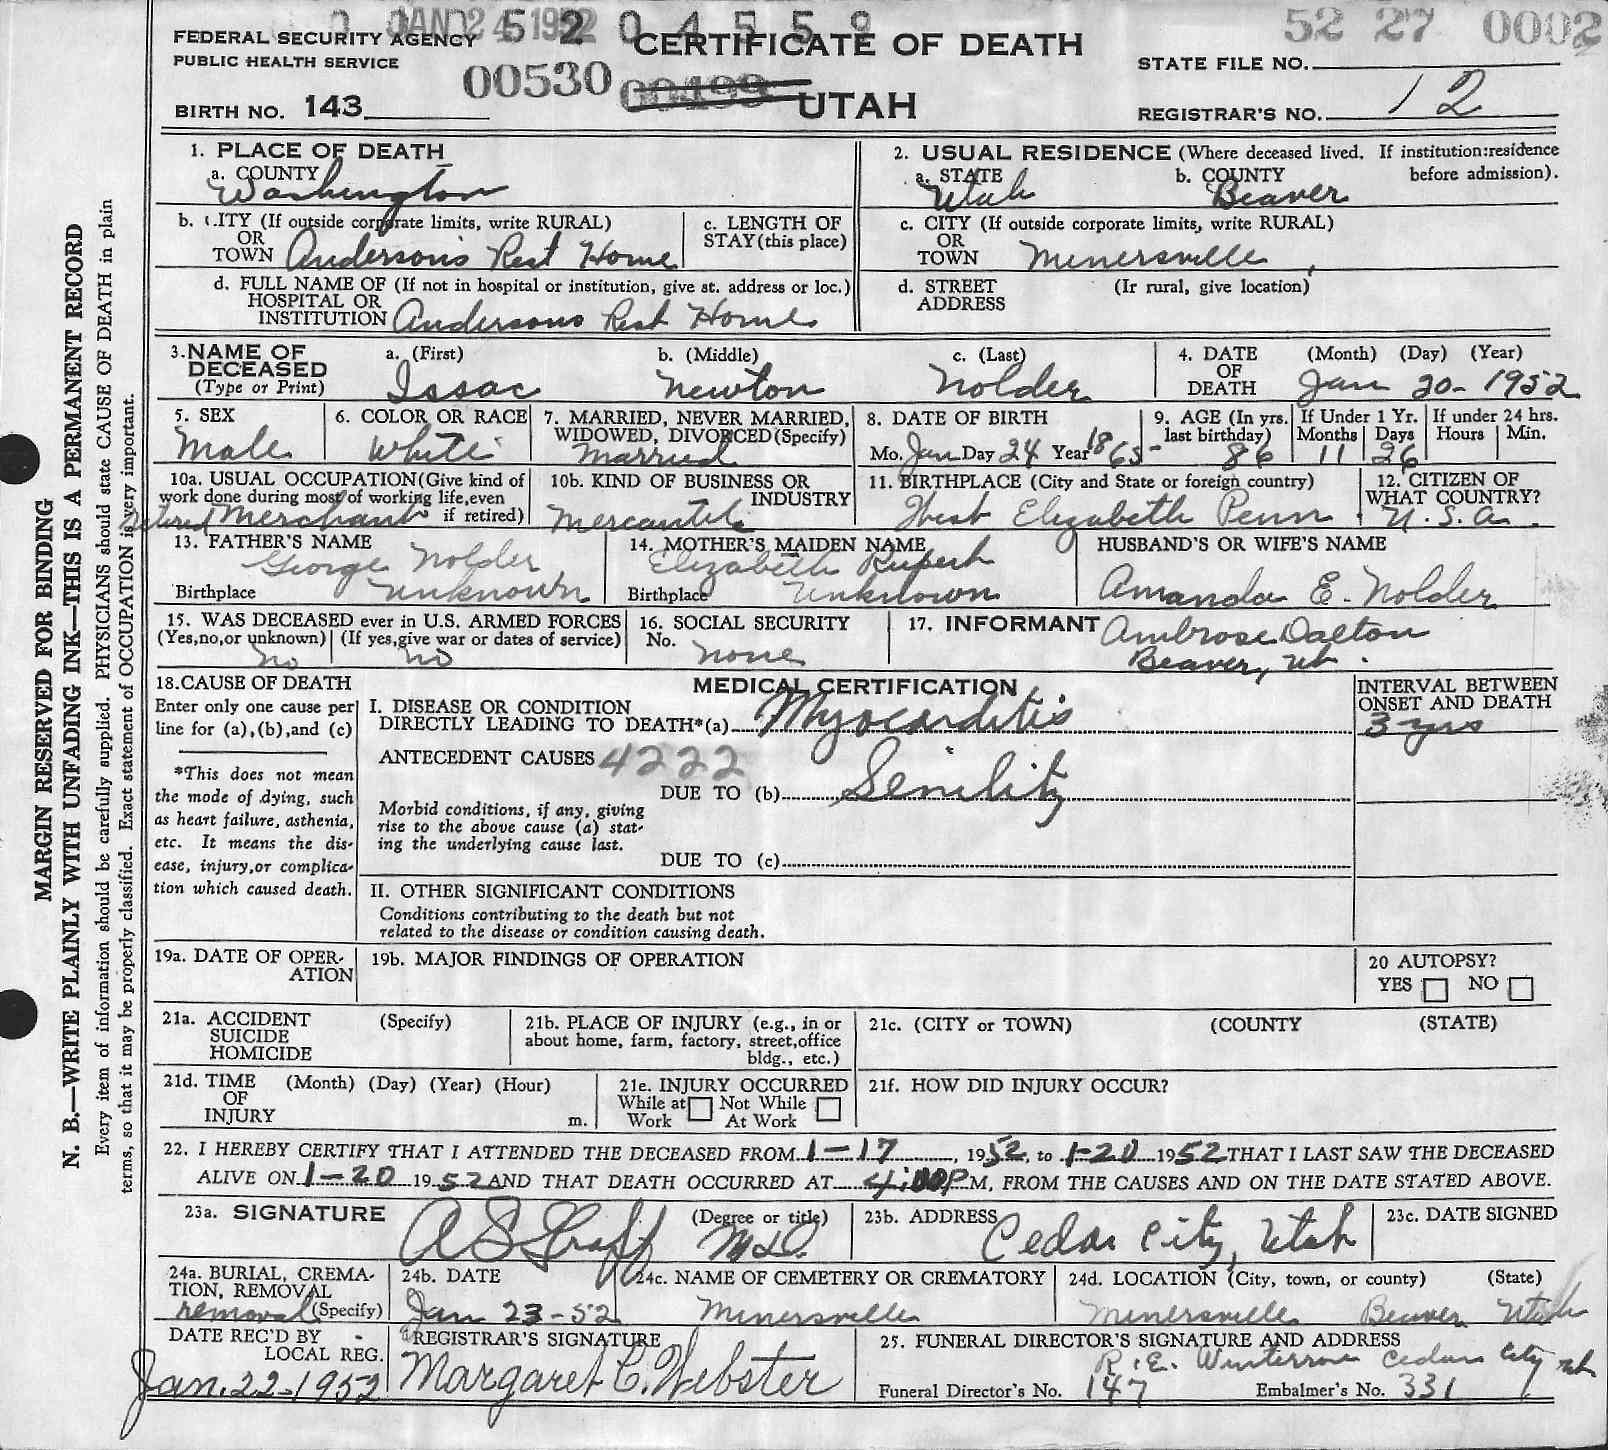 JAN 24 1952
52 0 4 5 5 9
52 27 0002
FEDERAL SECURITY AGENCY
PUBLIC HEALTH SERVICE
CERTIFICATE OF DEATH
STATE FILE NO.
00530 00499 UTAH
BIRTH NO. 143
REGISTRAR'S NO. 12
1. PLACE OF DEATH
a. COUNTY
Washington
2. USUAL RESIDENCE (Where deceased lived. If institution:residence
a. STATE b. COUNTY before admission).
Utah Beaver
b. CITY (If outside corporate limits, write RURAL)
OR
TOWN Anderson's Rest Home
c. LENGTH OF
STAY(this place)
c. CITY (If outside corporate limits, write RURAL)
OR
TOWN Minersville
d. FULL NAME OF (If not in hospital or institution, give st. address or loc.)
HOSPITAL OR
INSTITUTION Andersons Rest Home
d. STREET (Ir rural, give location)
ADDRESS
3. NAME OF a. (First) b. (Middle) c. (Last)
DECEASED
(Type or Print) Issac Newton Nolder
4. DATE (Month) (Day) (Year)
OF
DEATH Jan 20-1952
5. SEX
Male
6. COLOR OR RACE
White
7. MARRIED, NEVER MARRIED,
WIDOWED, DIVORCED(Specify)
Married
8. DATE OF BIRTH
Mo. Jan Day 24 Year 1865
9. AGE (In yrs.
last birthday)
86
If Under 1 Yr.
Months Days
11 26
If under 24 hrs.
Hours Min.
10a. USUAL OCCUPATION(Give kind of
work done during most of working life,even
retired Merchant if retired)
10b. KIND OF BUSINESS OR
INDUSTRY
Mercantile
11. BIRTHPLACE (City and State or foreign country)
West Elizabeth Penn.
12. CITIZEN OF
WHAT COUNTRY?
U.S.A.
13. FATHER'S NAME
George Nolder
Birthplace Unknown
14. MOTHER'S MAIDEN NAME
Elizabeth Rupert
Birthplace Unknown
HUSBAND'S OR WIFE'S NAME
Amanda E. Nolder
15. WAS DECEASED ever in U.S. ARMED FORCES
(Yes,no,or unknown) (If yes,give war or dates of service)
no no
16. SOCIAL SECURITY
No.
none
17. INFORMANT Ambrose Dalton
Beaver, Ut.
18. CAUSE OF DEATH
Enter only one cause per
line for (a),(b),and (c)
*This does not mean
the mode of dying, such
as heart failure, asthenia,
etc. It means the dis-
ease, injury,or complica-
tion which caused death.
MEDICAL CERTIFICATION
I. DISEASE OR CONDITION
DIRECTLY LEADING TO DEATH*(a) Myocarditis
ANTECEDENT CAUSES 4222
DUE TO (b) Senility
Morbid conditions, if any, giving
rise to the above cause (a) stat-
ing the underlying cause last.
DUE TO (c)
II. OTHER SIGNIFICANT CONDITIONS
Conditions contributing to the death but not
related to the disease or condition causing death.
INTERVAL BETWEEN
ONSET AND DEATH
3 yrs
19a. DATE OF OPER-
ATION
19b. MAJOR FINDINGS OF OPERATION
20 AUTOPSY?
YES NO
21a. ACCIDENT (Specify)
SUICIDE
HOMICIDE
21b. PLACE OF INJURY (e.g., in or
about home, farm, factory, street,office
bldg., etc.)
21c. (CITY or TOWN) (COUNTY (STATE)
21d. TIME (Month) (Day) (Year) (Hour)
OF
INJURY m.
21e. INJURY OCCURRED
While at Not While
Work At Work
21f. HOW DID INJURY OCCUR?
22. I HEREBY CERTIFY THAT I ATTENDED THE DECEASED FROM 1-17, 1952, to 1-20 1952 THAT I LAST SAW THE DECEASED
ALIVE ON 1-20 1952 AND THAT DEATH OCCURRED AT 4:00 P M, FROM THE CAUSES AND ON THE DATE STATED ABOVE.
23a. SIGNATURE (Degree or title)
A S Graff M.D.
23b. ADDRESS
Cedar City, Utah
23c. DATE SIGNED
24a. BURIAL, CREMA-
TION, REMOVAL
removal (Specify)
24b. DATE
Jan 23-52
24c. NAME OF CEMETERY OR CREMATORY
Minersville
24d. LOCATION (City, town, or county) (State)
Minersville Beaver Utah
DATE REC'D BY
LOCAL REG.
Jan. 22-1952
REGISTRAR'S SIGNATURE
Margaret C. Webster
25. FUNERAL DIRECTOR'S SIGNATURE AND ADDRESS
R.E. Winterrose Cedar City Ut
Funeral Director's No. 147 Embalmer's No. 331
MARGIN RESERVED FOR BINDING
N. B.—WRITE PLAINLY WITH UNFADING INK—THIS IS A PERMANENT RECORD
Every item of information should be carefully supplied. PHYSICIANS should state CAUSE OF DEATH in plain
terms, so that it may be properly classified. Exact statement of OCCUPATION is very important.